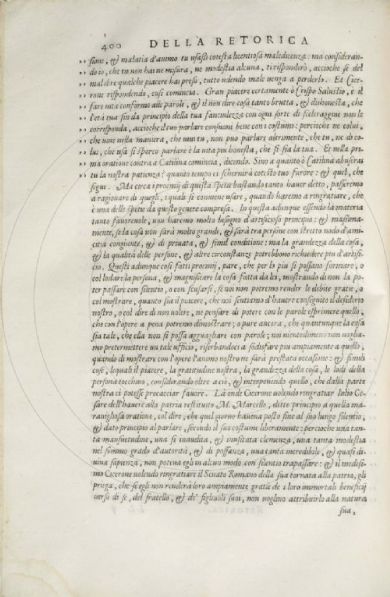 400 DELLA RETORICA
sione, & malatia d'animo tu usassi cotesta licentiosa maledicenza: ma consideran-
doio, che tu non hai ne misura, ne modestia alcuna, ti risponderò, accioche se del
mal dire qualche piacere hai preso, tutto udendo male venga a perderlo. Et Cice-
rone rispondendo, cosi comincia. Gran piacere certamente ò Crispo Salustio, è il
fare vita conforme alle parole, & il non dire cosa tanto brutta, & dishonesta, che
l'età tua sin da principio della tua fanciullezza con ogni sorte di
corrisponda, accioche d'uno parlare consuoni bene con i costumi: percioche ne colui,
che vive nella maniera, che vivi tu, può parlare altrimente, che tu, ne co-
lui, che usa si sporco parlare è la vita più honesta, che si sia la tua. Et nella pri-
ma oratione contra à Catilina comincia, dicendo. Sino a quanto ò Catilina abuserai
tu la nostra patienza? quanto tempo ci schernirà cotesto tuo furore: & quel, che
segue. Ma circa i proemij di questa spetie bastando tanto haver detto, passeremo
a ragionare di quegli, i quali si convien usare, quando haremo a ringratiare, che
è una delle spetie da questo genere compresa. In questa adunque essendo la materia
tanto favorevole, non haremo molto bisogno d'artificioso principio: & massimame-
te, se la cosa non sarà molto grande, & sarà tra persone con istretto nodo d'ami-
citia congionte, & di privata, & simil conditione: ma la grandezza della cosa,
& la qualità delle persone, & altre circonstanze potrebbono richiedere piu d'artifi-
cio. Questi adunque cosi fatti proemij, pare, che per lo piu si possano formare, o
col lodare la persona, & magnificare la cosa fatta da lei, mostrando di non la po-
ter passare con silentio, o con scusarsi, se noi non potremo render le debite gratie, o
col mostrare, quanto sia il piacere, che noi sentiamo d'havere conseguito il desiderio
nostro, o col dire di non valere, ne pensare di potere con le parole esprimere quello,
che con l'opere a pena potremo dimostrare; o pure ancora, che quantunque la cosa
sia tale, che ella non si possa agguagliare con parole: noi nientedimeno non vogliā-
mo pretermettere un tale ufficio, riserbandoci a satisfare piu ampiamente a quello,
quando di mostrare con l'opere l'animo nostro ne sarà prestata occasione: & simili
cose, lequali il piacere, la gratitudine nostra, la grandezza della cosa, le lode della
persona tocchino, considerando oltre a ciò, & interponendo quello, che dalla parte
nostra ci potesse procacciar favore. La onde Cicerone volendo ringratiar Iulio Ce-
sare dell'havere alla patria restituito M. Marcello, dette principio a quella sua ma-
ravigliosa oratione, col dire, che quel giorno haveva posto fine al suo lungo silentio,
& dato principio al parlare, secondo il suo costume liberamente: percioche una tan-
ta mansuetudine, una si inaudita, & inusitata clemenza, una tanta modestia
nel sommo grado d'autorità, & di possanza, una tanta incredibile, & quasi di-
vina sapienza, non poteva egli in alcun modo con silentio trapassare: & il medesi-
mo Cicerone volendo ringratiare il Senato Romano della sua tornata alla patria, gli
priega, che se egli non renderà loro ampiamente gratie de i loro immortali beneficij
verso di se, del fratello, & de' figliuoli suoi, non voglino attribuirlo alla natura
sua,